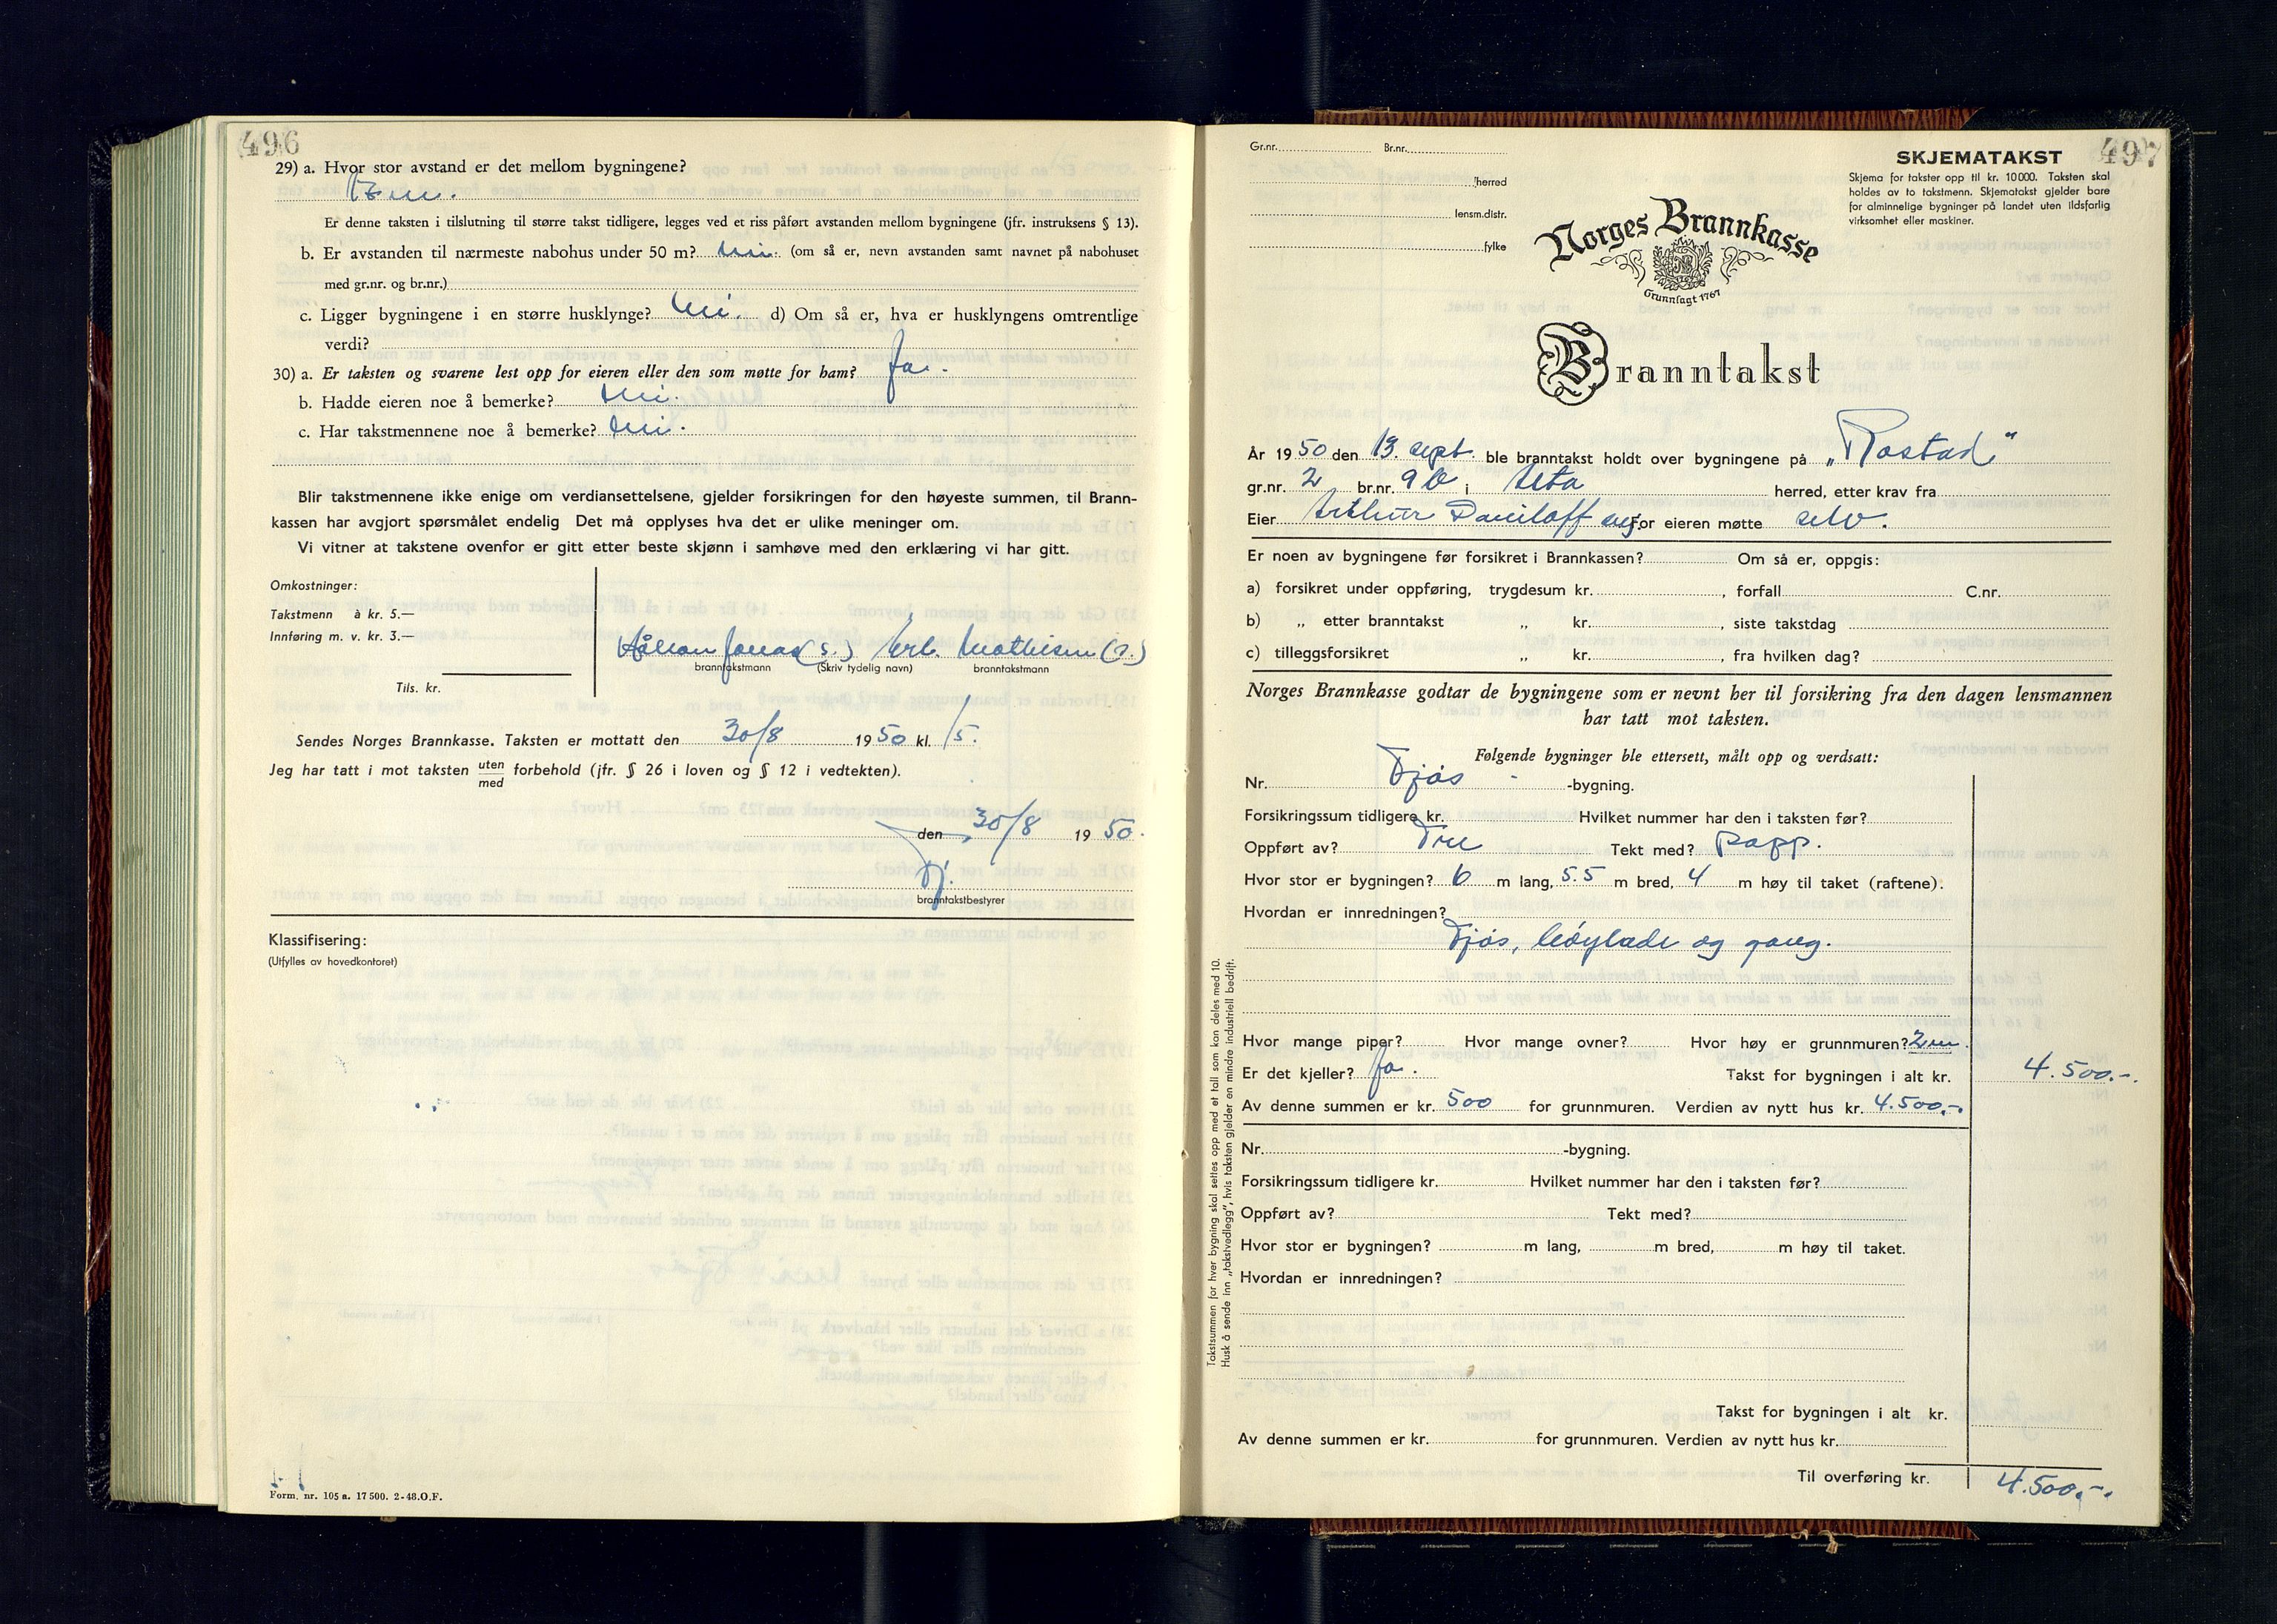 496
29) a. Hvor stor avstand er det mellom bygningene?
Er denne taksten i tilslutning til større takst tidligere, legges ved et riss påført avstanden mellom bygningene (jfr. instruksens § 13).
b. Er avstanden til nærmeste nabohus under 50 m? Nei. (om så er, nevn avstanden samt navnet på nabohuset
med gr.nr. og br.nr.)
c. Ligger bygningene i en større husklynge? Nei. d) Om så er, hva er husklyngens omtrentlige
verdi?
30) a. Er taksten og svarene lest opp for eieren eller den som møtte for ham? Ja.
b. Hadde eieren noe å bemerke? Nei.
c. Har takstmennene noe å bemerke? Nei.
Blir takstmennene ikke enige om verdiansettelsene, gjelder forsikringen for den høyeste summen, til Brann-
kassen har avgjort spørsmålet endelig Det må opplyses hva det er ulike meninger om.
Vi vitner at takstene ovenfor er gitt etter beste skjønn i samhøve med den erklæring vi har gitt.
Omkostninger:
Takstmenn à kr. 5.—
Innføring m. v. kr. 3.—
Tils. kr.
Håkon Jonas (s.) Mathisen (s.)
branntakstmann (Skriv tydelig navn) branntakstmann
Sendes Norges Brannkasse. Taksten er mottatt den 30/8 1950 kl. 15.
Jeg har tatt i mot taksten uten forbehold (jfr. § 26 i loven og § 12 i vedtekten).
med
den 30/8 1950.
branntakstbestyrer
Klassifisering:
(Utfylles av hovedkontoret)
Form. nr. 105 a. 17 500. 2-48. O.F.
497
Gr.nr. Br.nr.
herred
lensm.distr.
fylke
SKJEMATAKST
Skjema for takster opp til kr. 10000. Taksten skal
holdes av to takstmenn. Skjematakst gjelder bare
for alminnelige bygninger på landet uten ildsfarlig
virksomhet eller maskiner.
Norges Brannkasse
Grunnlagt 1767
Branntakst
År 1950 den 13. sept. ble branntakst holdt over bygningene på „Rostad"
gr.nr. 2 br.nr. 90 i Alta herred, etter krav fra
Eier Arthur Daniloff For eieren møtte selv.
Er noen av bygningene før forsikret i Brannkassen? Om så er, oppgis:
a) forsikret under oppføring, trygdesum kr. , forfall C.nr.
b) „ etter branntakst „ kr. , siste takstdag
c) tilleggsforsikret „ kr. , fra hvilken dag?
Norges Brannkasse godtar de bygningene som er nevnt her til forsikring fra den dagen lensmannen
har tatt mot taksten.
Følgende bygninger ble ettersett, målt opp og verdsatt:
Nr. Fjøs - -bygning.
Forsikringssum tidligere kr. Hvilket nummer har den i taksten før?
Oppført av? Tre Tekt med? papp.
Hvor stor er bygningen? 6 m lang, 5.5 m bred, 4 m høy til taket (raftene).
Hvordan er innredningen?
Fjøs, høylade og gang.
Hvor mange piper? Hvor mange ovner? Hvor høy er grunnmuren? 2 m.
Er det kjeller? Ja. Takst for bygningen i alt kr. 4.500.-.
Av denne summen er kr. 500 for grunnmuren. Verdien av nytt hus kr. 4.500.-
Nr. -bygning.
Forsikringssum tidligere kr. Hvilket nummer har den i taksten før?
Oppført av? Tekt med?
Hvor stor er bygningen? m lang, m bred, m høy til taket.
Hvordan er innredningen?
Takst for bygningen i alt kr.
Av denne summen er kr. for grunnmuren. Verdien av nytt hus kr.
Til overføring kr. 4.500.-.
Takstsummen for hver bygning skal settes opp med et tall som kan deles med 10.
Husk å sende inn „takstvedlegg", hvis taksten gjelder en mindre industriell bedrift.